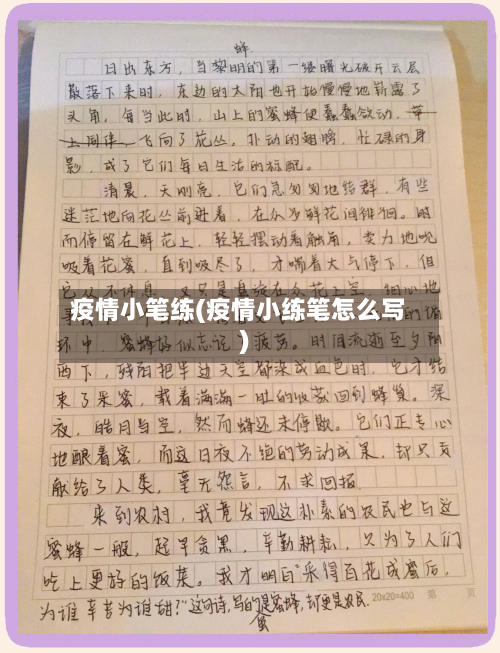 蜂.
日出东方，当黎明的第一缕曙光破开云层
散落下来时，东边的太阳也开始慢慢地崭露了
头角，每当此时，山上的蜜蜂便蠢蠢欲动，
飞向了花丛，扑动的翅膀，忙碌的身
影，成了它们每日生活的标配。
清晨，天刚亮，它们急匆匆地结群，有些
迷茫地向花丛前进着，在众多鲜花间徘徊。时
而停留在鲜花上，轻轻摆动着触角，卖力地吮
吸着花蜜，直到吸尽了，才喘着大气停下，但
疫情小笔练(疫情小练笔怎么写
)
环中，蜜蜂好似忘记了疲劳。时间流逝至夕阳
西下，残阳把半边天空都染成血色时，它才结
束了采蜜，载着满满一肚的收获回到蜂巢。深
夜，皓月当空，然而蜂还未停歇。它们正专心
地酿着蜜，而这日夜不绝的劳动成果，却只贡
献给了人类，毫无怨言，不求回报
来到农村，我竟发现这朴素的农民也与这
蜜蜂一般，起早贪黑，辛勤耕耘，只为了人们
吃上更好的饭菜。我才明白"采得百花成蜜后，
为谁辛苦为谁甜？"这句诗，写的是蜜蜂，却更是农民.
20x20=400 第 页